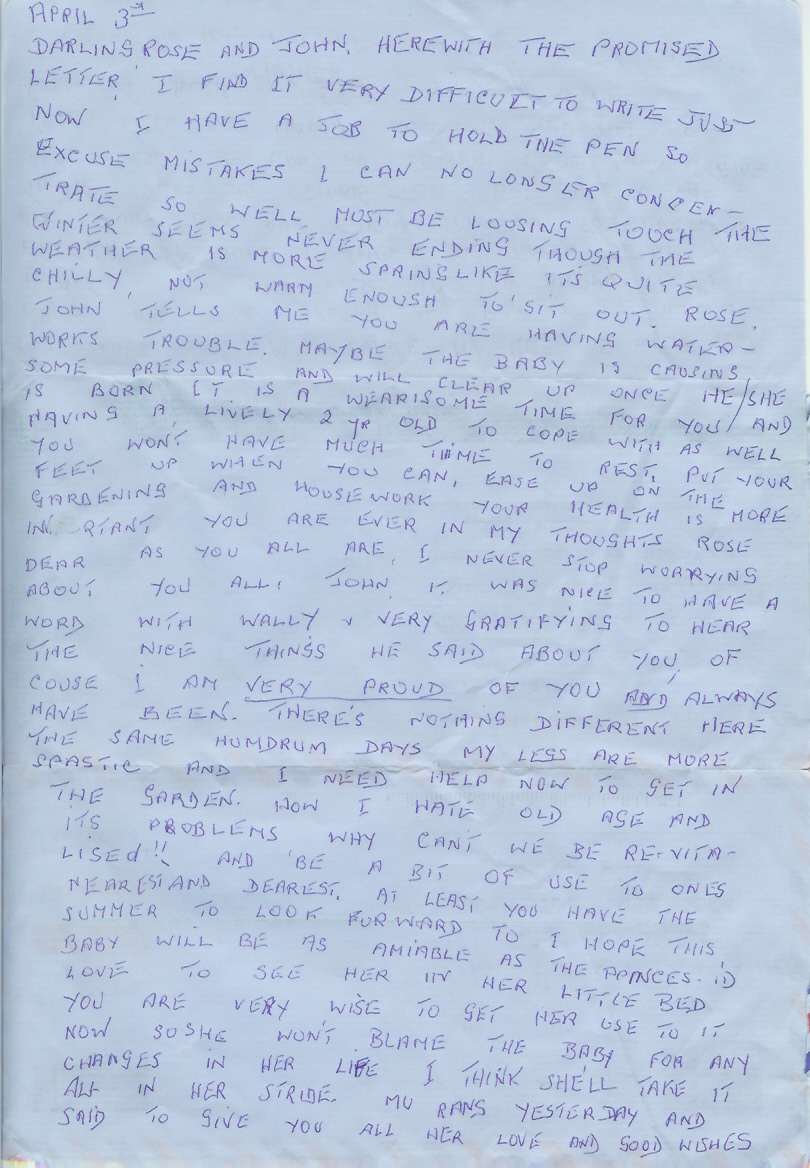 APRIL 3rd
DARLING ROSE AND JOHN. HEREWITH THE PROMISED
LETTER I FIND IT VERY DIFFICULT TO WRITE JUST
NOW I HAVE A JOB TO HOLD THE PEN SO
EXCUSE MISTAKES I CAN NO LONGER CONCEN-
TRATE SO WELL MUST BE LOOSING TOUCH THE
WINTER SEEMS NEVER ENDING THOUGH THE
WEATHER IS MORE SPRINGLIKE ITS QUITE
CHILLY, NOT WARM ENOUGH TO SIT OUT. ROSE,
JOHN TELLS ME YOU ARE HAVING WATER-
WORKS TROUBLE. MAYBE THE BABY IS CAUSING
SOME PRESSURE AND WILL CLEAR UP ONCE HE/SHE
IS BORN IT IS A WEARISOME TIME FOR YOU AND
HAVING A LIVELY 2 yr OLD TO COPE WITH AS WELL
YOU WONT HAVE MUCH TIME TO REST, PUT YOUR
FEET UP WHEN YOU CAN, EASE UP ON THE
GARDENING AND HOUSEWORK YOUR HEALTH IS MORE
YOU ARE EVER IN MY THOUGHTS ROSE
DEAR AS YOU ALL ARE, I NEVER STOP WORRYING
ABOUT YOU ALL! JOHN, IT WAS NICE TO HAVE A
WORD WITH WALLY & VERY GRATIFYING TO HEAR
THE NICE THINGS HE SAID ABOUT YOU, OF
COUSE I AM VERY PROUD OF YOU AND ALWAYS
HAVE BEEN. THERE'S NOTHING DIFFERENT HERE
THE SAME HUMDRUM DAYS MY LEGS ARE MORE
SPASTIC AND I NEED HELP NOW TO GET IN
THE GARDEN. HOW I HATE OLD AGE AND
ITS PROBLEMS WHY CANT WE BE RE-VITA-
LISEd!! AND BE A BIT OF USE TO ONES
NEAREST AND DEAREST. AT LEAST YOU HAVE THE
SUMMER TO LOOK FORWARD TO I HOPE THIS
BABY WILL BE AS AMIABLE AS THE PRINCES. ID
LOVE TO SEE HER IN HER LITTLE BED
YOU ARE VERY WISE TO GET HER USE TO IT
NOW SO SHE WON'T BLAME THE BABY FOR ANY
CHANGES IN HER LIFE I THINK SHE'LL TAKE IT
ALL IN HER STRIDE. MU RANG YESTERDAY AND
SAID TO GIVE YOU ALL HER LOVE AND GOOD WISHES